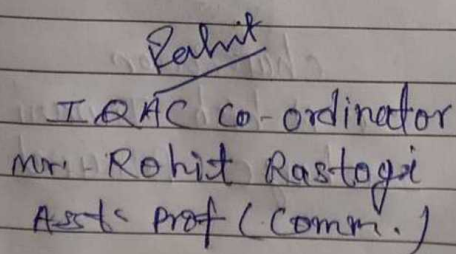 Rohit
IQAC Co-ordinator
Mr. Rohit Rastogi
Asst. Prof (Comm.)